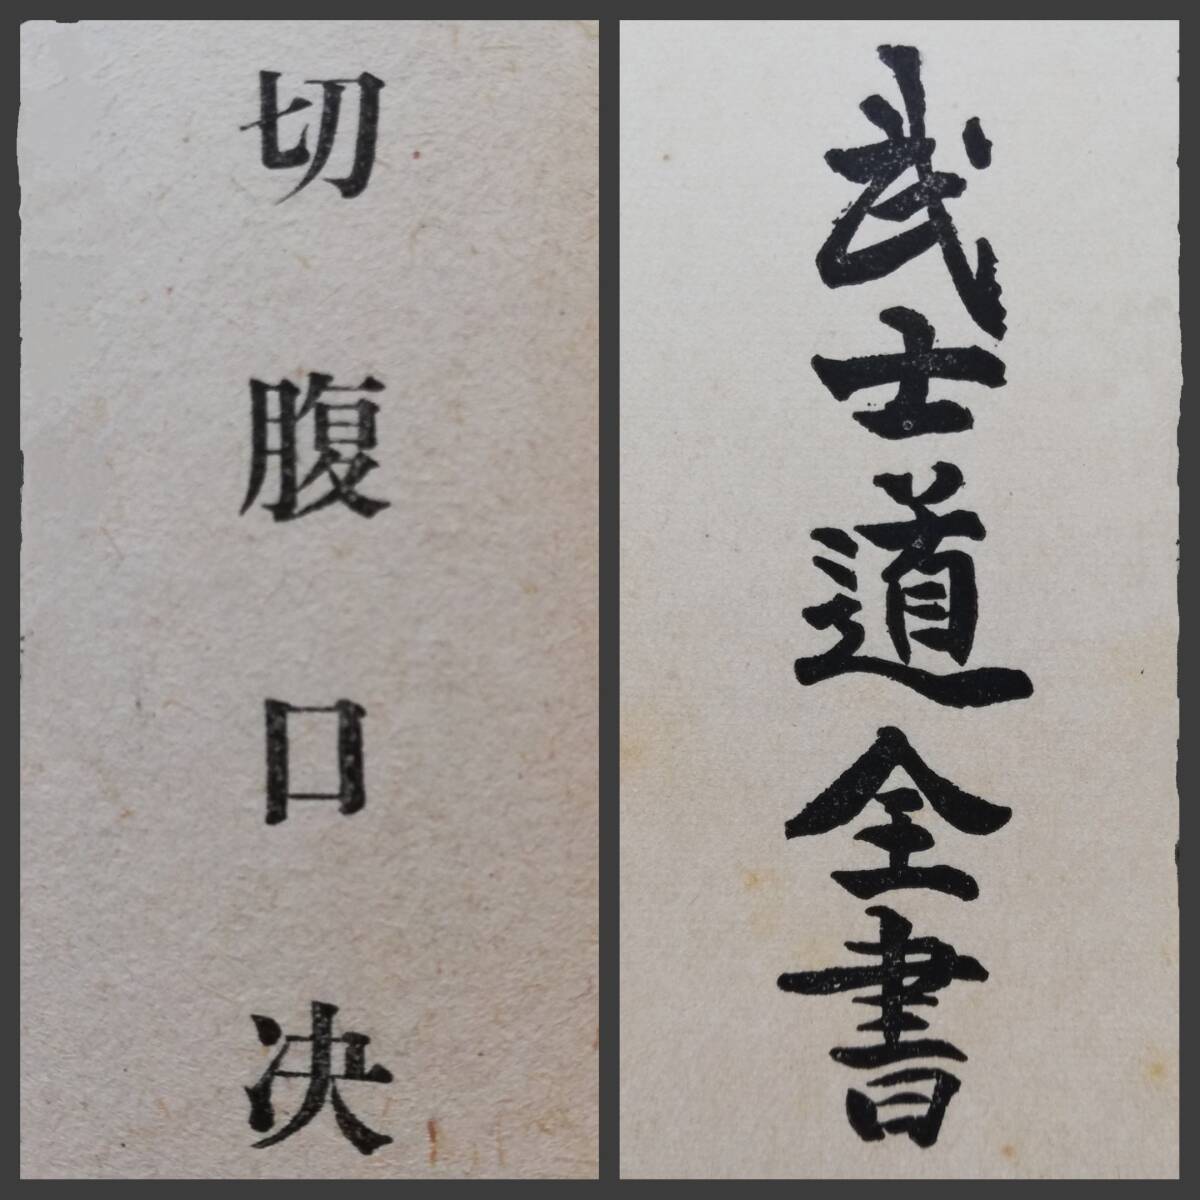 切腹口决
武士道全書